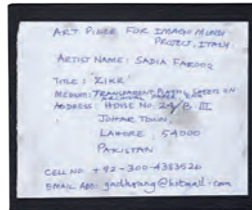 ART PIECE FOR IMAGO MUNDI
PROJECT, ITALY
ARTIST NAME: SADIA FAROOQ
TITLE: 'ZIKR'
MEDIUM: TRANSPARENT PLASTIC SHEETS ON
ARCHIVAL
ADDRESS: HOUSE No. 24/B. III
JOHAR TOWN.
LAHORE 54000
PAKISTAN
CELL NO: +92-300-4383526
EMAIL ADD: @hotmail.com